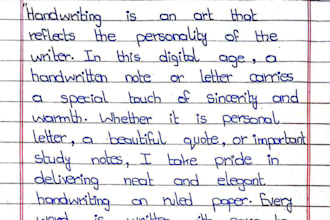 "Handwriting is an art that
reflects the personality of the
writer. In this digital age, a
handwritten note or letter carries
a special touch of sincerity and
warmth. Whether it is personal
letter, a beautiful quote, or important
study notes, I take pride in
delivering neat and elegant
handwriting on ruled paper. Every
word is written with care to